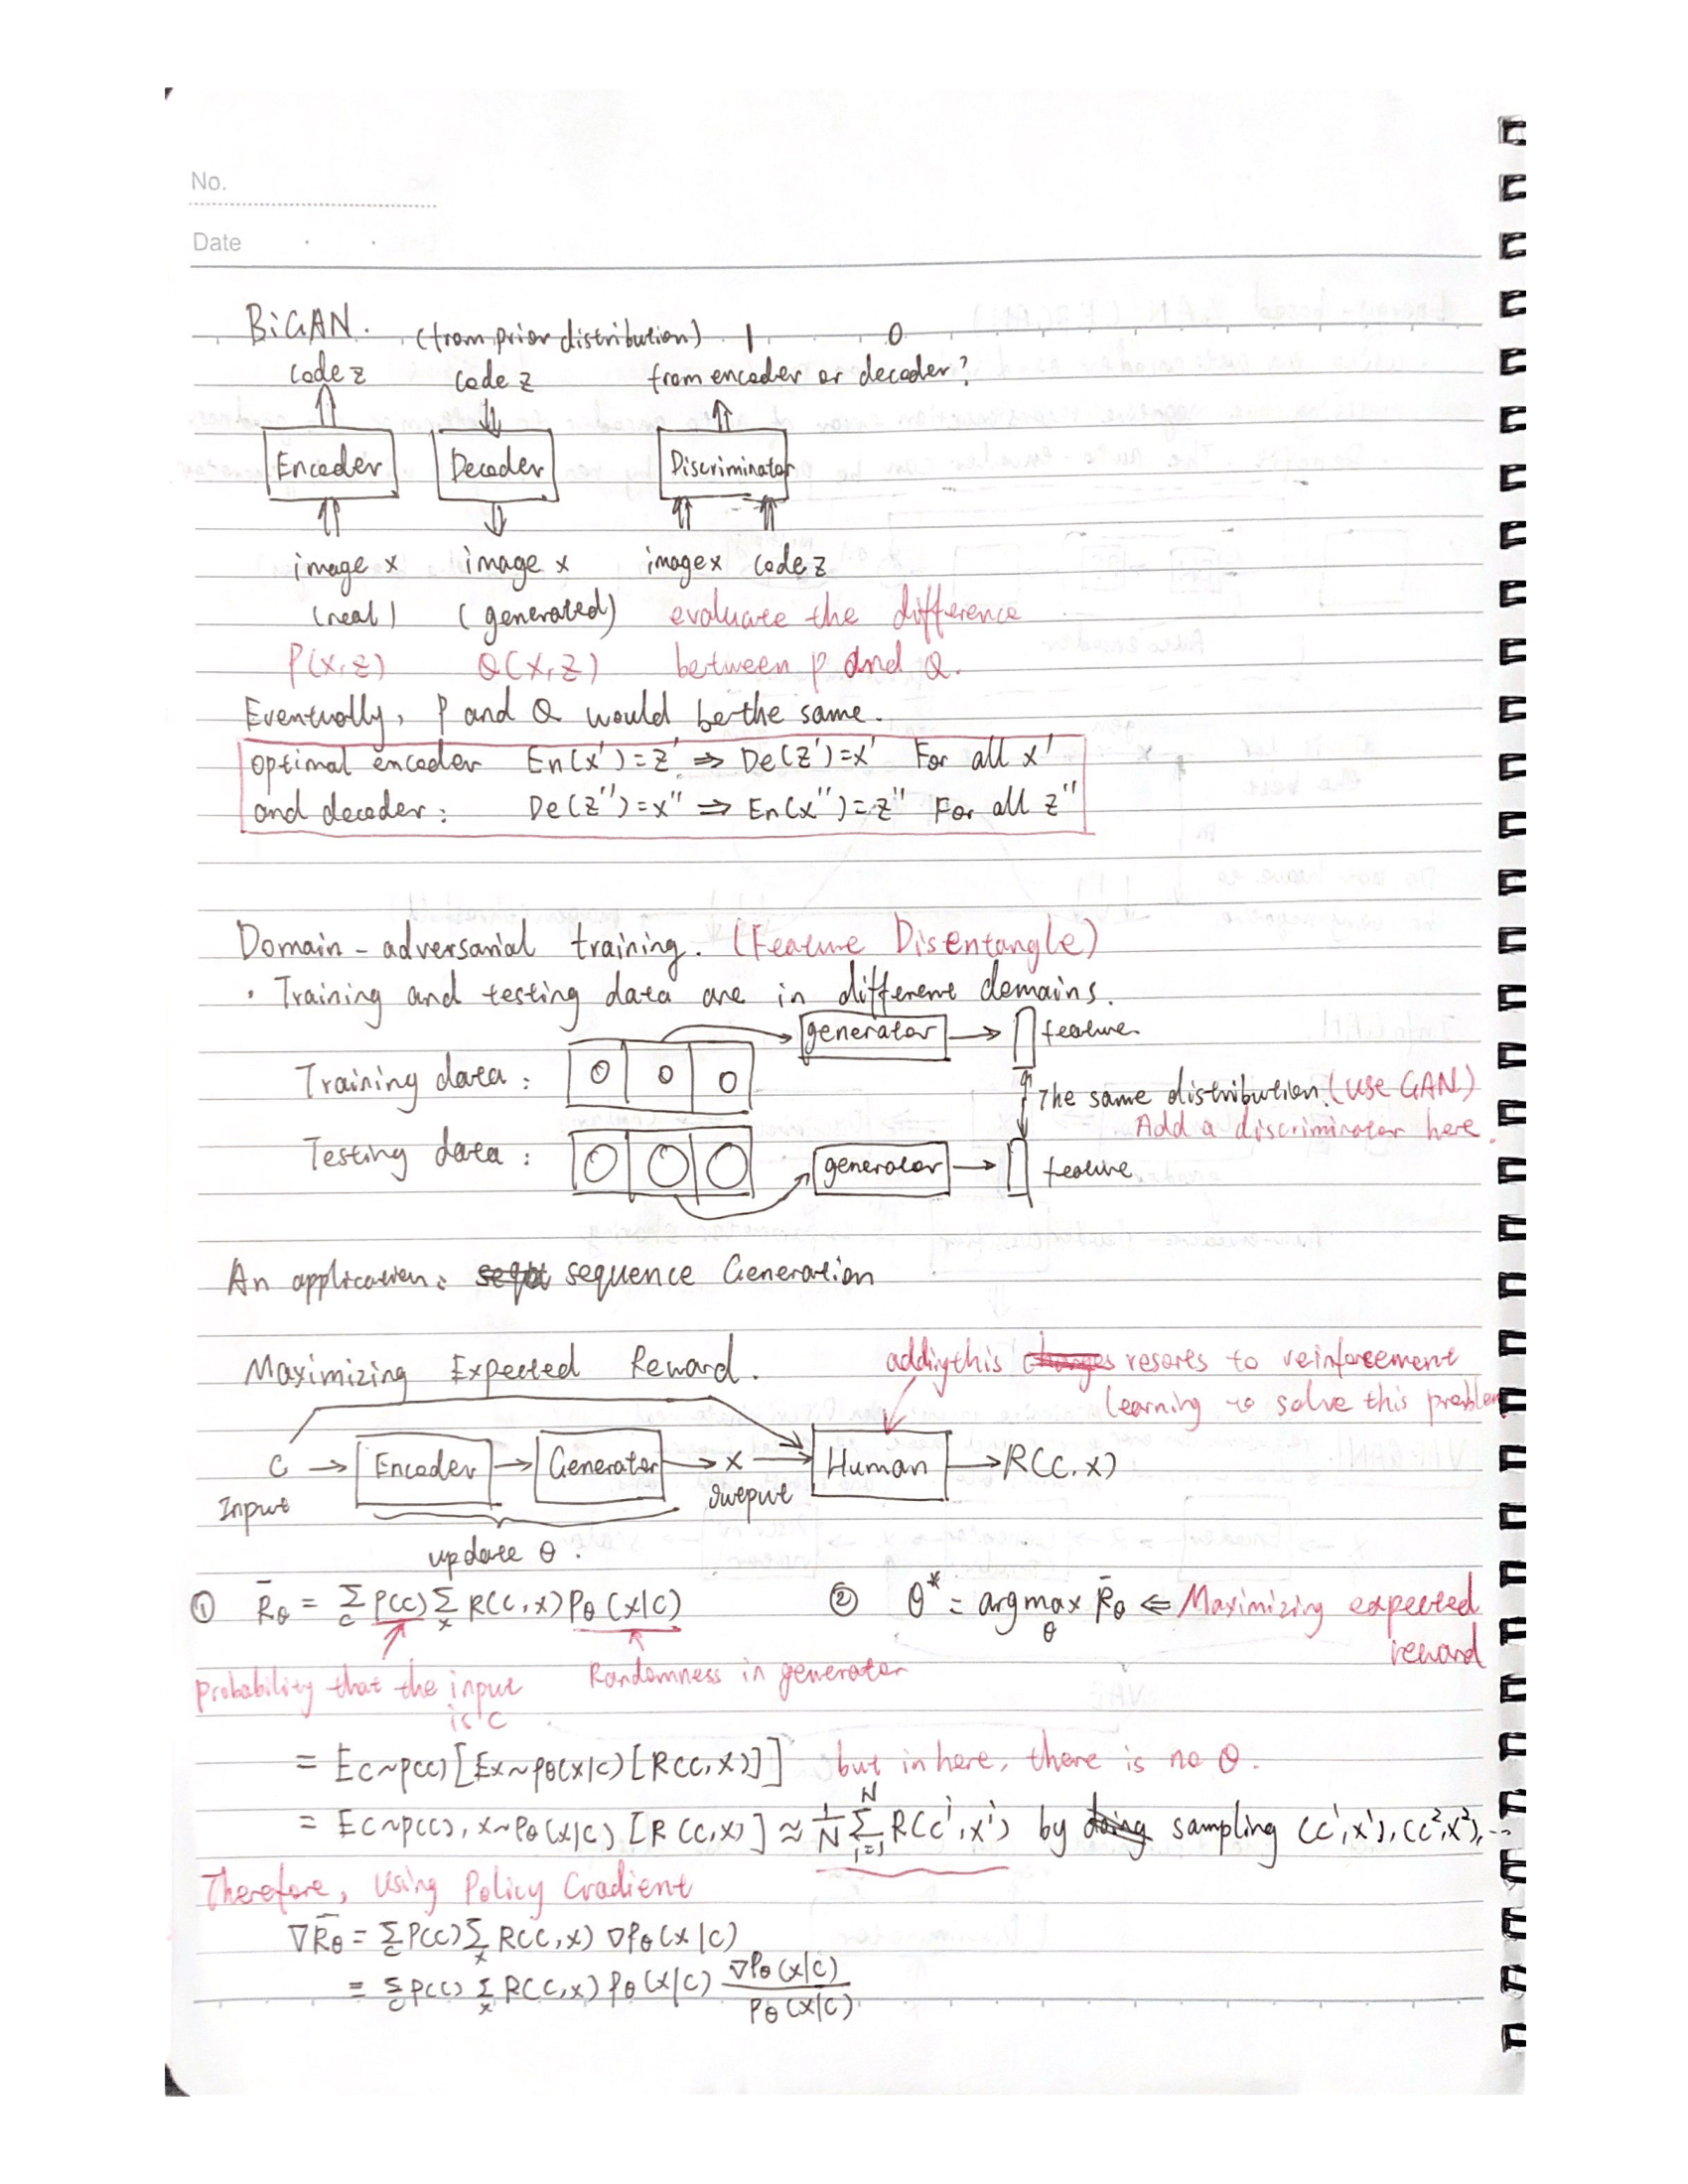 No.
Date
BiGAN. (from prior distribution) 1 0
code z code z from encoder or decoder?
Encoder Decoder Discriminator
image x image x image x code z
(real) (generated) evaluate the difference
P(x,z) Q(x,z) between p and Q.
Eventually, P and Q would be the same.
optimal encoder En(x')=z' ⇒ De(z')=x' For all x'
and decoder: De(z'')=x'' ⇒ En(x'')=z'' For all z''
Domain-adversarial training. (Feature Disentangle)
· Training and testing data are in different domains.
generator → feature
Training data:
The same distribution. (use GAN)
Add a discriminator here.
Testing data: generator → feature
An application: sequence Generation
Maximizing Expected Reward.
adding this resorts to reinforcement
learning to solve this problem
C → Encoder → Generator → x → Human → R(c,x)
Input output
update θ.
① R̄θ = Σ_c P(c) Σ_x R(c,x) Pθ(x|c) ② θ* = arg max_θ R̄θ ⇐ Maximizing expected
reward
Probability that the input Randomness in generator
is c
= E c~p(c) [E x~pθ(x|c) [R(c,x)]] but in here, there is no θ.
= E c~p(c), x~Pθ(x|c) [R(c,x)] ≈ 1/N Σ_{i=1}^{N} R(c^i,x^i) by sampling (c^1,x^1),(c^2,x^2),...
Therefore, Using Policy Gradient
∇R̄θ = Σ_c P(c) Σ_x R(c,x) ∇Pθ(x|c)
= Σ_c P(c) Σ_x R(c,x) Pθ(x|c) ∇Pθ(x|c) / Pθ(x|c)